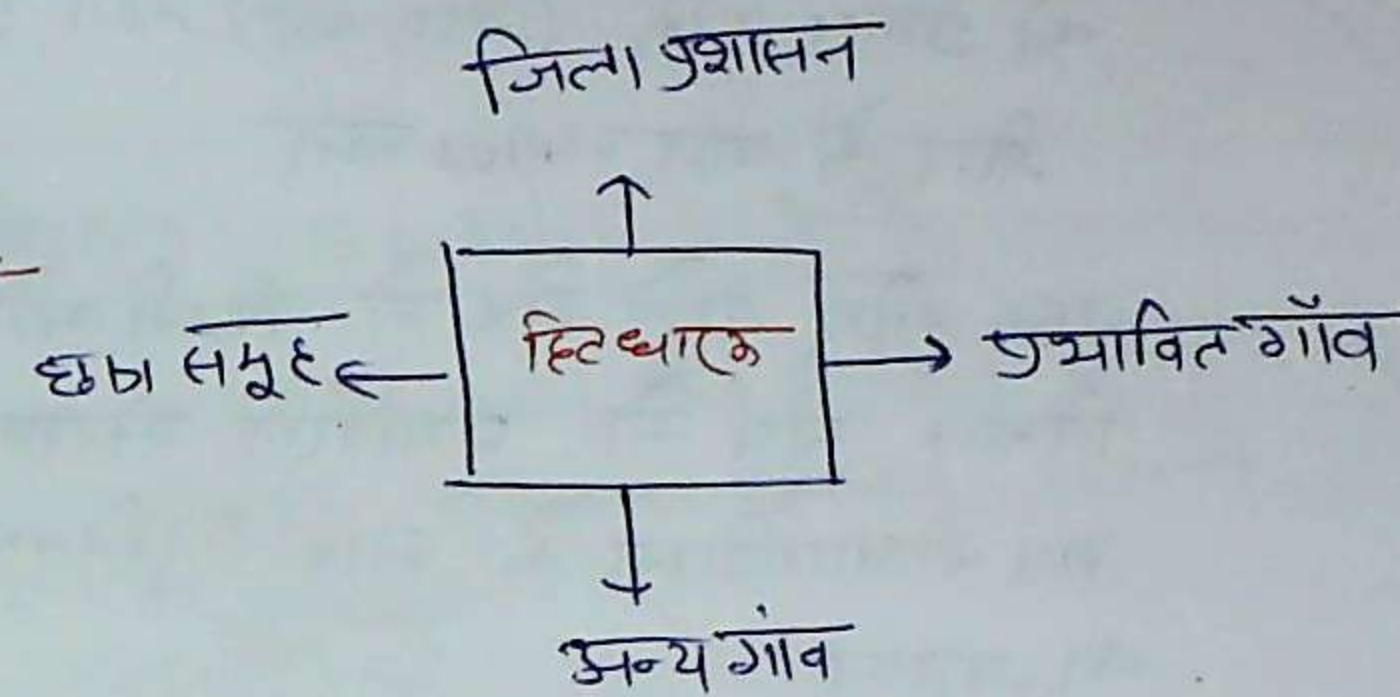 जिला प्रशासन
समूह
हितधारक
प्रभावित गाँव
अन्य गांव